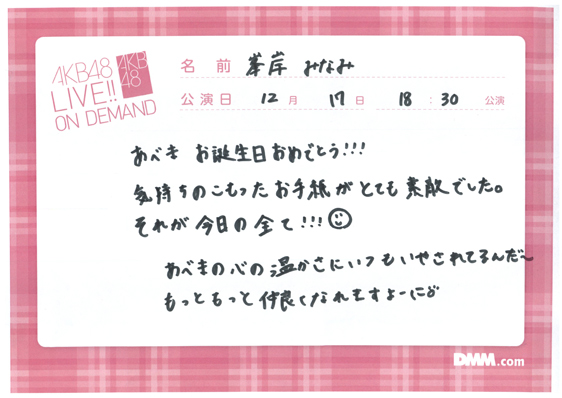 AKB48
LIVE!!
ON DEMAND
AKB
48
名 前 峯岸 みなみ
公演日 12 月 17 日 18 : 30 公演
あべき お誕生日おめでとう!!!
気持ちのこもったお手紙がとても素敵でした。
それが今日の全て!!!
あべきの心の温かさにいつもいやされてるんだ〜
もっともっと仲良くなれますよーに
DMM.com